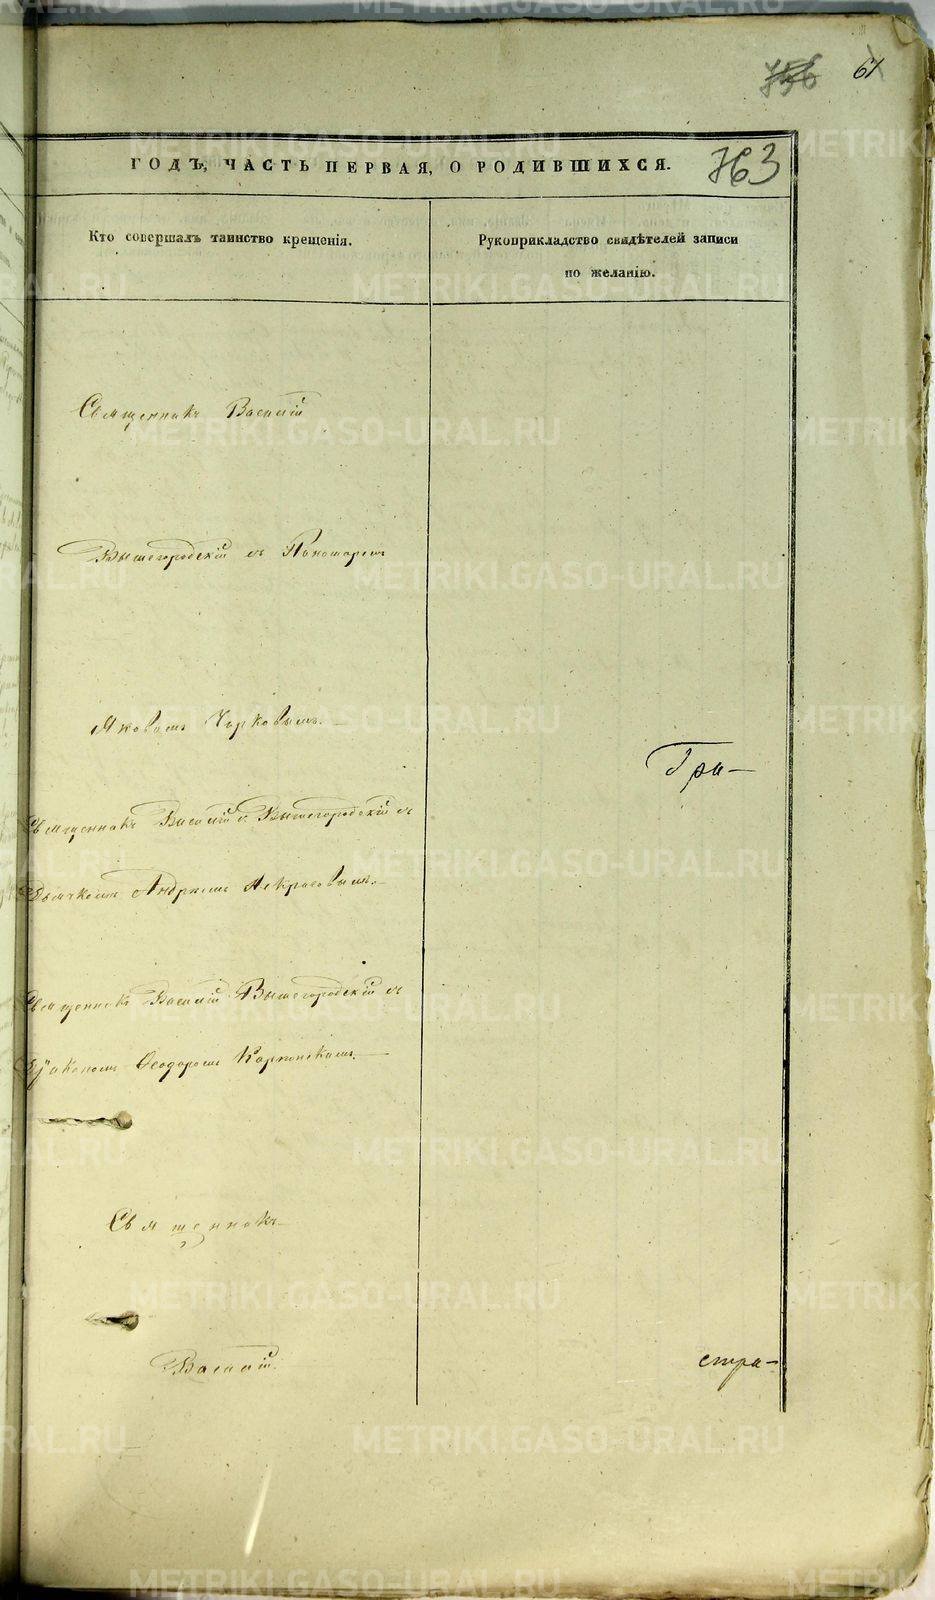 61
763
ГОДЪ, ЧАСТЬ ПЕРВАЯ, О РОДИВШИХСЯ.
Кто совершалъ таинство крещенія.
Рукоприкладство свидѣтелей записи
по желанію.
Священникъ Василій
Вышегородскій съ Пономаремъ
Яковомъ
Гра-
Священникъ Василій Вышегородскій съ
Дьячкомъ Андреемъ Некрасовымъ.
Священникъ Василій Вышегородскій съ
Діакономъ Ѳеодоромъ
Священникъ
Василій
стра-
METRIKI.GASO-URAL.RU